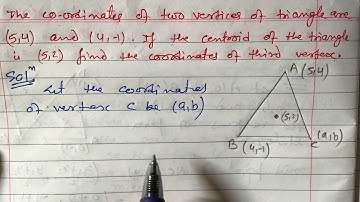 The co-ordinates of two vertices of triangle are
(5,4) and (4,-1). If the centroid of the triangle
is (5,2) find the coordinates of third vertex.
Solⁿ
Let the coordinates
of vertex C be (a,b)
A (5,4)
(5,2)
B (4,-1)
C (a,b)